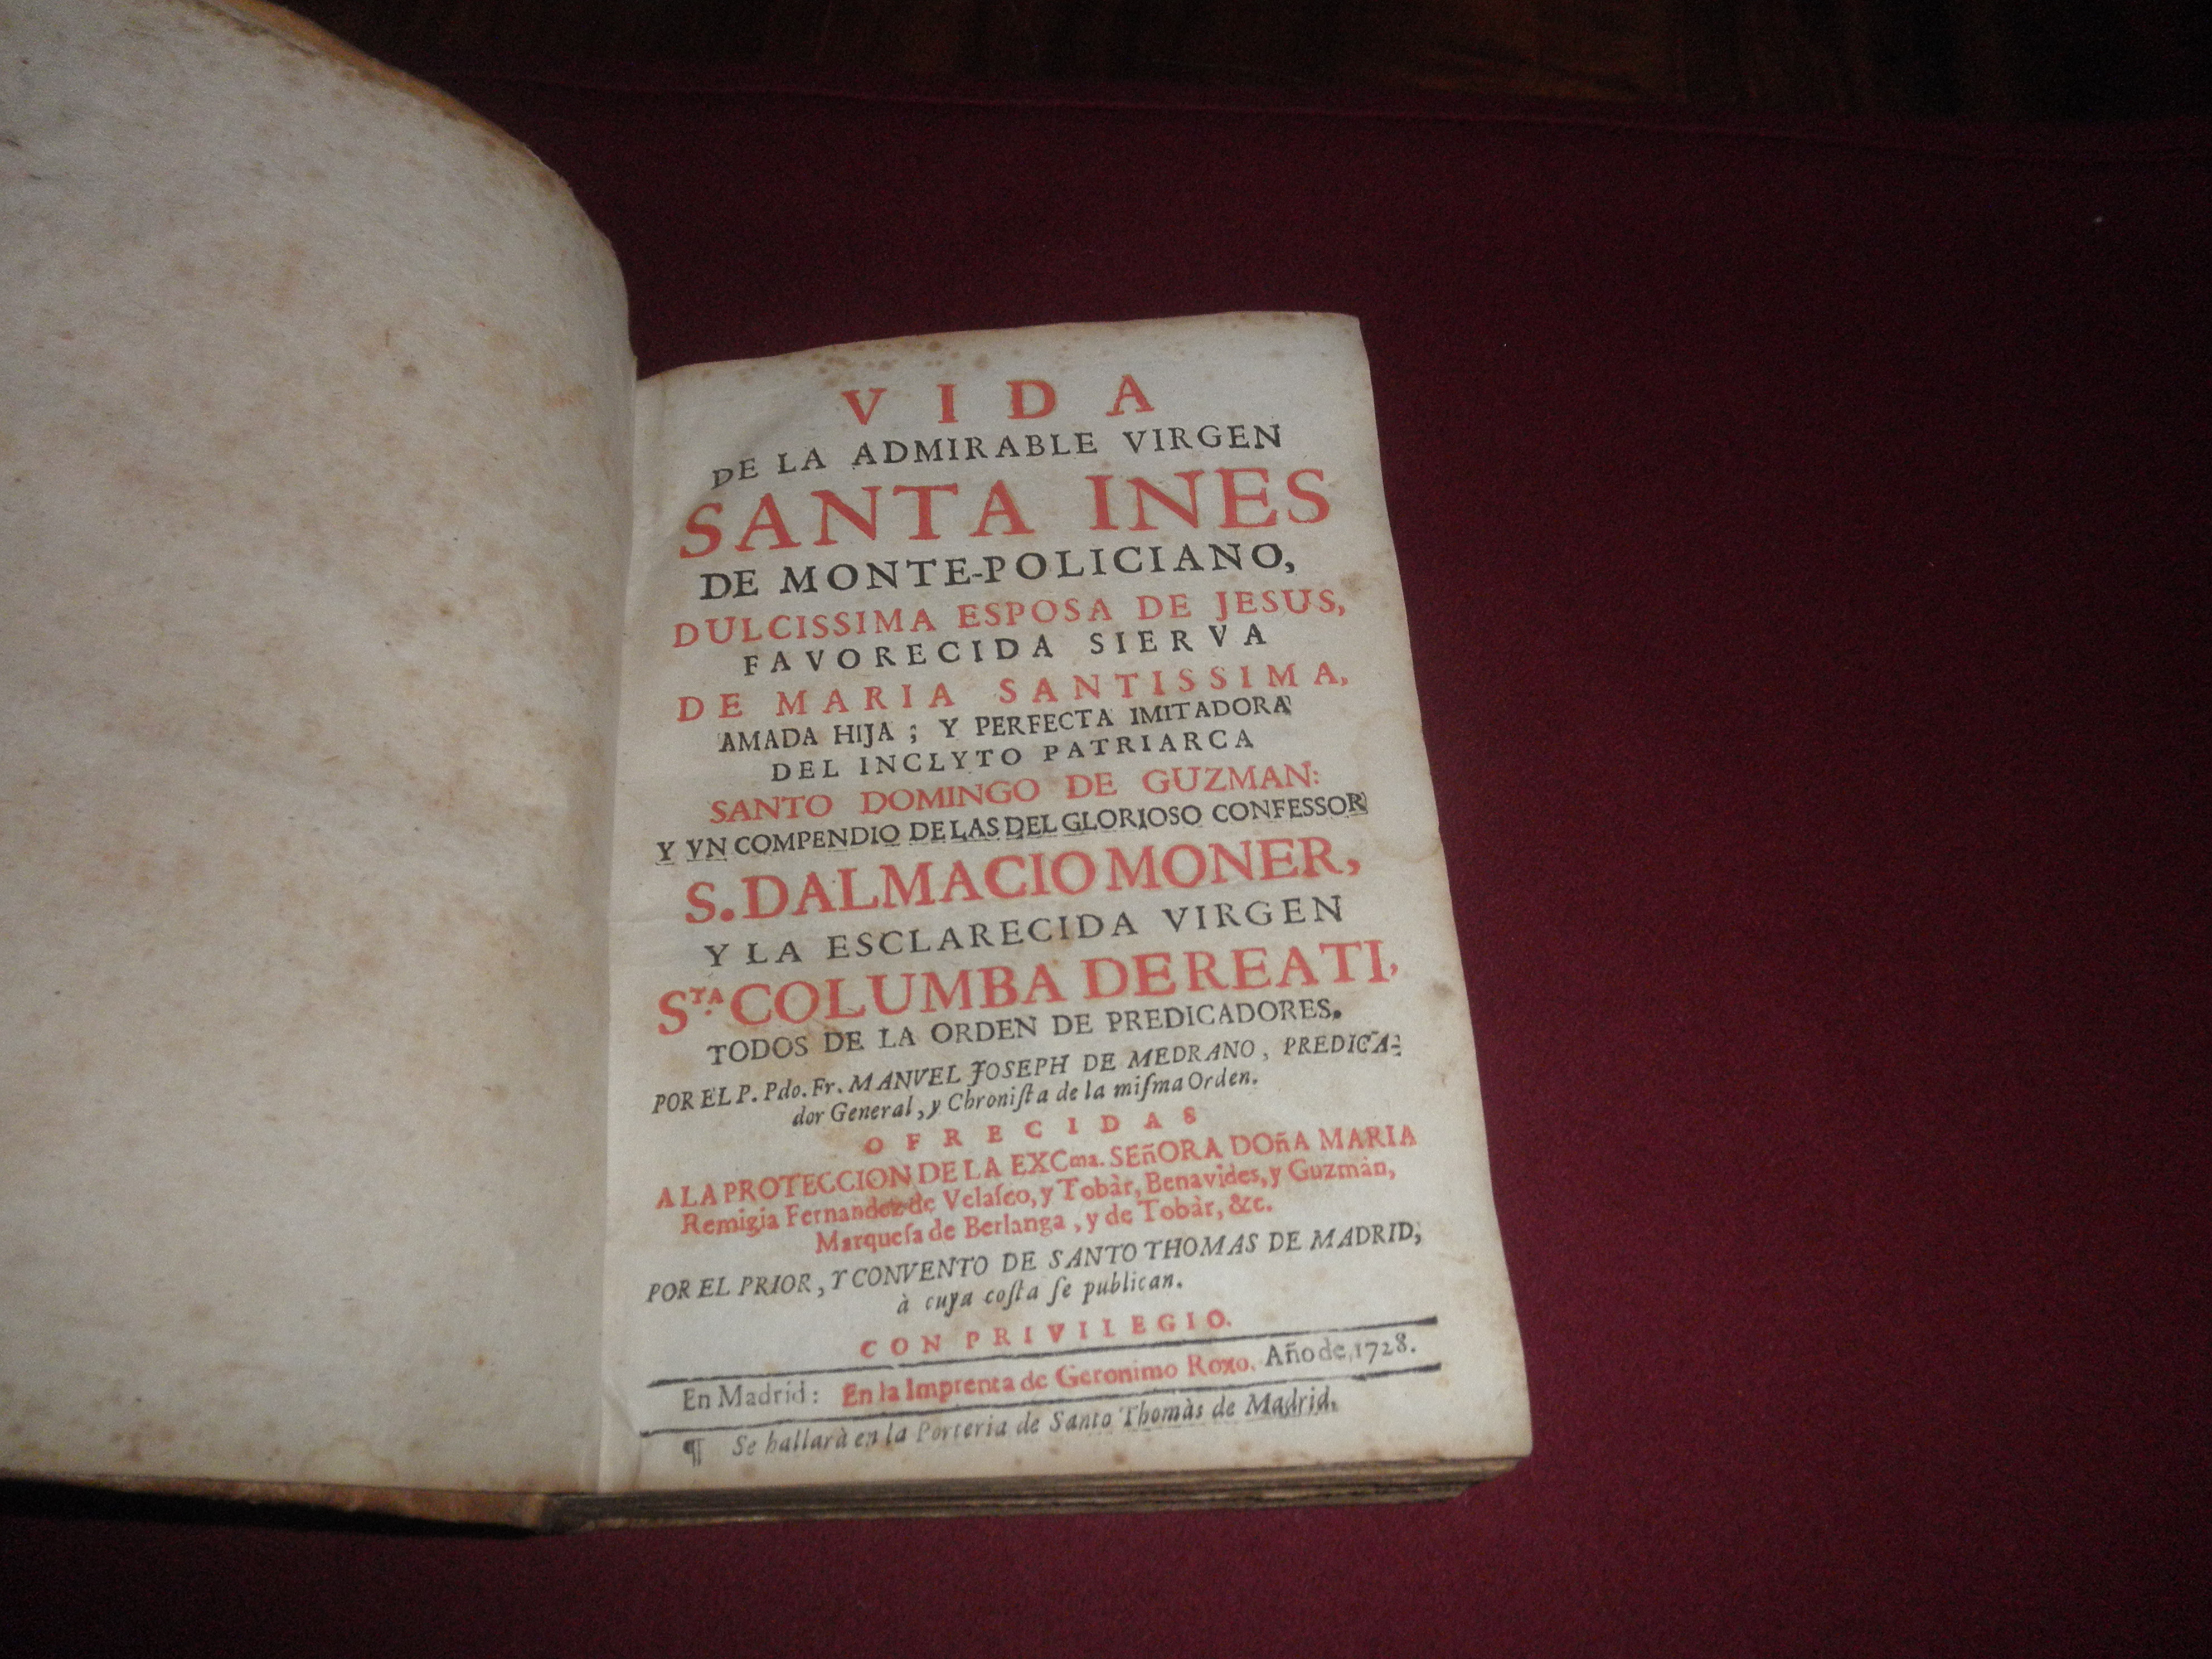 VIDA
DE LA ADMIRABLE VIRGEN
SANTA INES
DE MONTE-POLICIANO,
DULCISSIMA ESPOSA DE JESUS,
FAVORECIDA SIERVA
DE MARIA SANTISSIMA,
AMADA HIJA; Y PERFECTA IMITADORA
DEL INCLYTO PATRIARCA
SANTO DOMINGO DE GUZMAN:
Y VN COMPENDIO DE LAS DEL GLORIOSO CONFESSOR
S. DALMACIO MONER,
Y LA ESCLARECIDA VIRGEN
S.TA COLUMBA DE REATI,
TODOS DE LA ORDEN DE PREDICADORES.
POR EL P. Pdo. Fr. MANVEL JOSEPH DE MEDRANO, PREDICA-
dor General, y Chroniſta de la miſma Orden.
OFRECIDAS
A LA PROTECCION DE LA EXCma. SEñORA DOñA MARIA
Remigia Fernandez de Velaſco, y Tobàr, Benavides, y Guzmàn,
Marqueſa de Berlanga, y de Tobàr, &c.
POR EL PRIOR, Y CONVENTO DE SANTO THOMAS DE MADRID,
à cuya coſta ſe publican.
CON PRIVILEGIO.
En Madrid: En la Imprenta de Geronimo Roxo. Año de 1728.
¶ Se hallarà en la Porteria de Santo Thomàs de Madrid.